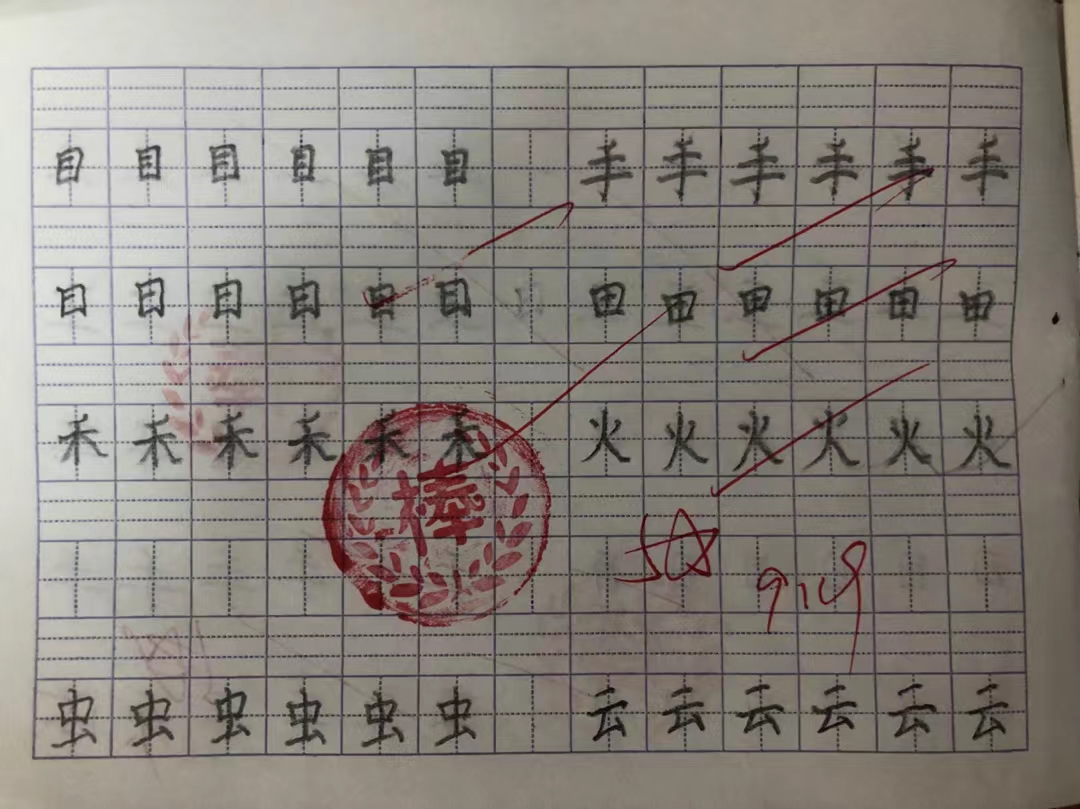 目 目 目 目 目 目 手 手 手 手 手 手
日 日 日 日 日 日 田 田 田 田 田 田
禾 禾 禾 禾 禾 禾 火 火 火 火 火 火
棒
5☆ 9.19
虫 虫 虫 虫 虫 虫 云 云 云 云 云 云